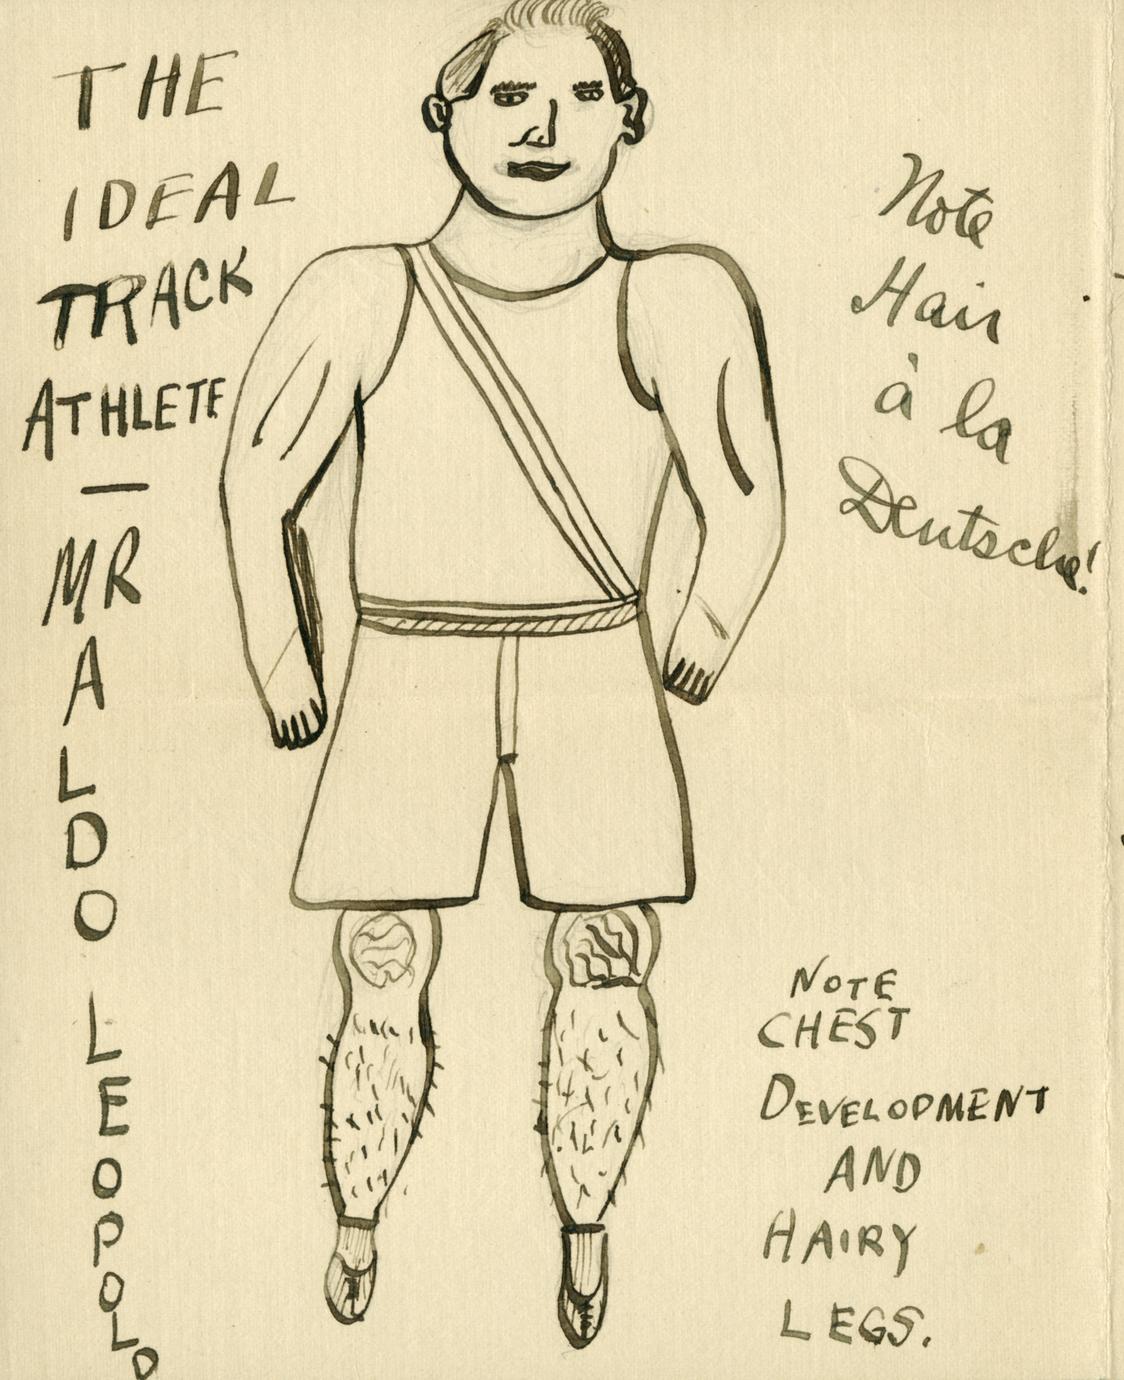 THE
IDEAL
TRACK
ATHLETE
—
MR
A
L
D
O
L
E
O
P
O
L
D
Note
Hair
à la
Deutsche!
NOTE
CHEST
DEVELOPMENT
AND
HAIRY
LEGS.